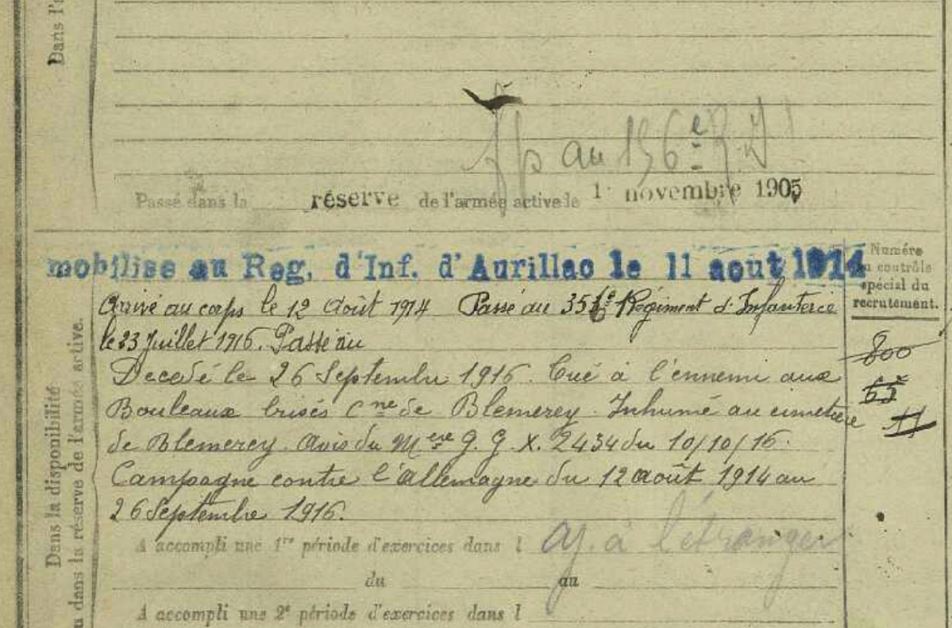 Dans l'a
au 156e R.I
Passé dans la réserve de l'armée active le 1 novembre 1905
mobilise au Reg. d'Inf. d'Aurillac le 11 aout 1914
Numéro
du contrôle
spécial du
recrutement.
Arrivé au corps le 12 Août 1914 Passé au Régiment d'Infanterie
le 23 Juillet 1916. Passé au
800
Decedé le 26 Septembre 1916. Tué à l'ennemi aux
Bouleaux brisés Cne de Blemerey. Inhumé au cimetière
11
de Blemerey. Avis du Mère G. G. X. 2434 du 10/10/16.
Campagne contre l'Allemagne du 12 août 1914 au
26 Septembre 1916.
Dans la disponibilité
ou dans la réserve de l'armée active.
A accompli une 1re période d'exercices dans l aj. à l'étranger
du au
A accompli une 2e période d'exercices dans l